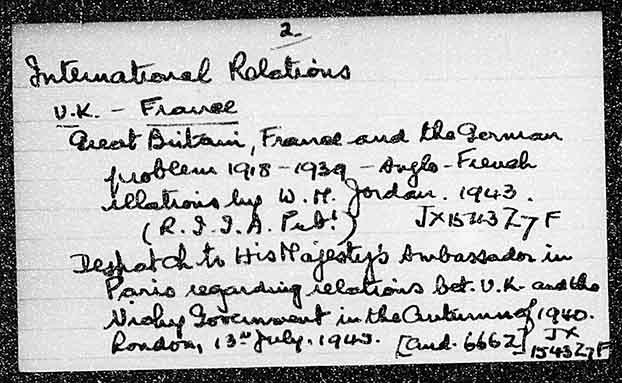 2
International Relations
U.K. - France
Great Britain, France and the German
problem 1918-1939 - Anglo-French
relations by W. M. Jordan. 1943.
(R. I. I. A. Pub!) JX1543Z7F
Despatch to His Majesty's Ambassador in
Paris regarding relations bet. U.K. and the
Vichy Government in the Autumn of 1940.
London, 13th July. 1945. [Cmd. 6662] JX
1543Z7F